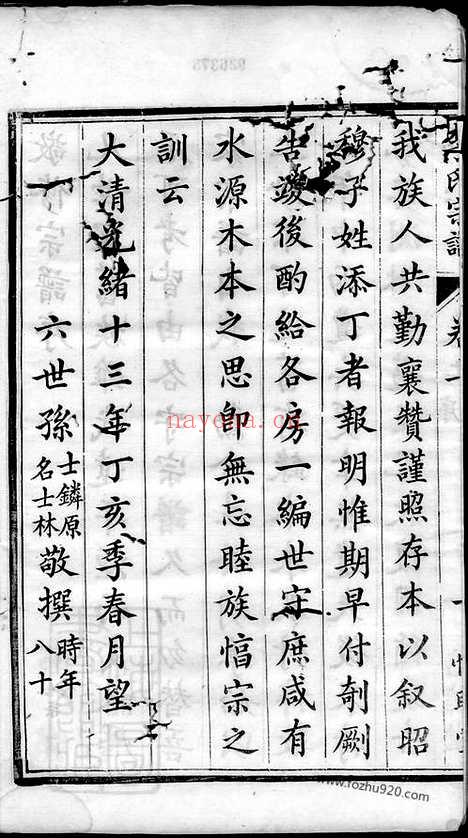 氏宗譜
卷一
我族人共勤襄贊謹照存本以叙昭
穆子姓添丁者報明惟期早付剞劂
告竣後酌給各房一編世守庶咸有
水源木本之思卽無忘睦族愊宗之
訓云
大清光緒十三年丁亥季春月望
六世孫士鏻原名士林敬撰時年八十
nayona.cn
www.fozhu920.com